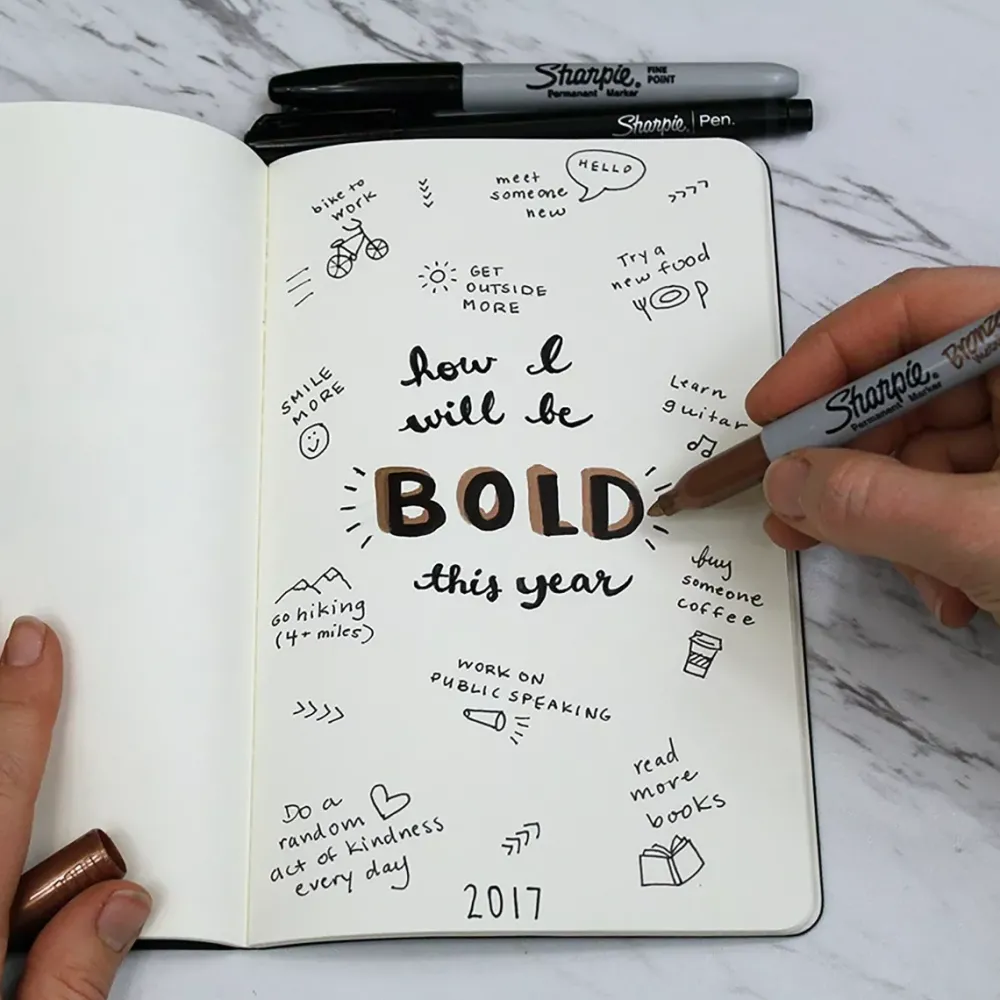 Sharpie. FINE POINT
Permanent Marker
Sharpie. | Pen.
bike to
work
meet
someone
new
HELLO
GET
OUTSIDE
MORE
Try a
new food
SMILE
MORE
how I
will be
BOLD
this year
Learn
guitar
Sharpie.
Permanent Marker
go hiking
(4+ miles)
buy
someone
coffee
WORK ON
PUBLIC SPEAKING
read
more
books
Do a
random
act of kindness
every day
2017